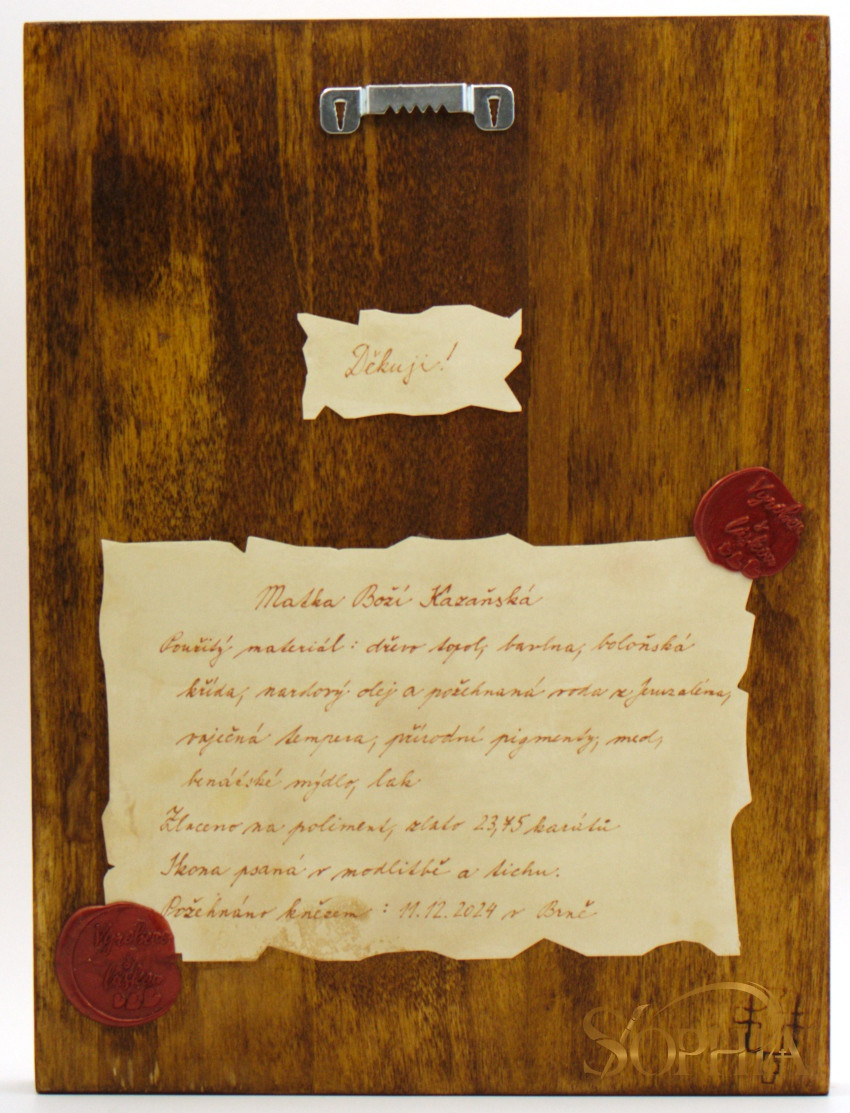 Děkuji!
Matka Boží Kazaňská
Použitý materiál: dřevo topol, bavlna, boloňská
křída, nardový olej a požehnaná voda z Jeruzaléma,
vaječná tempera, přírodní pigmenty, med,
benátské mýdlo, lak
Zlaceno na poliment, zlato 23,75 karátů
Ikona psaná v modlitbě a tichu.
Požehnáno knězem : 11.12.2024 v Brně
SOPHIA